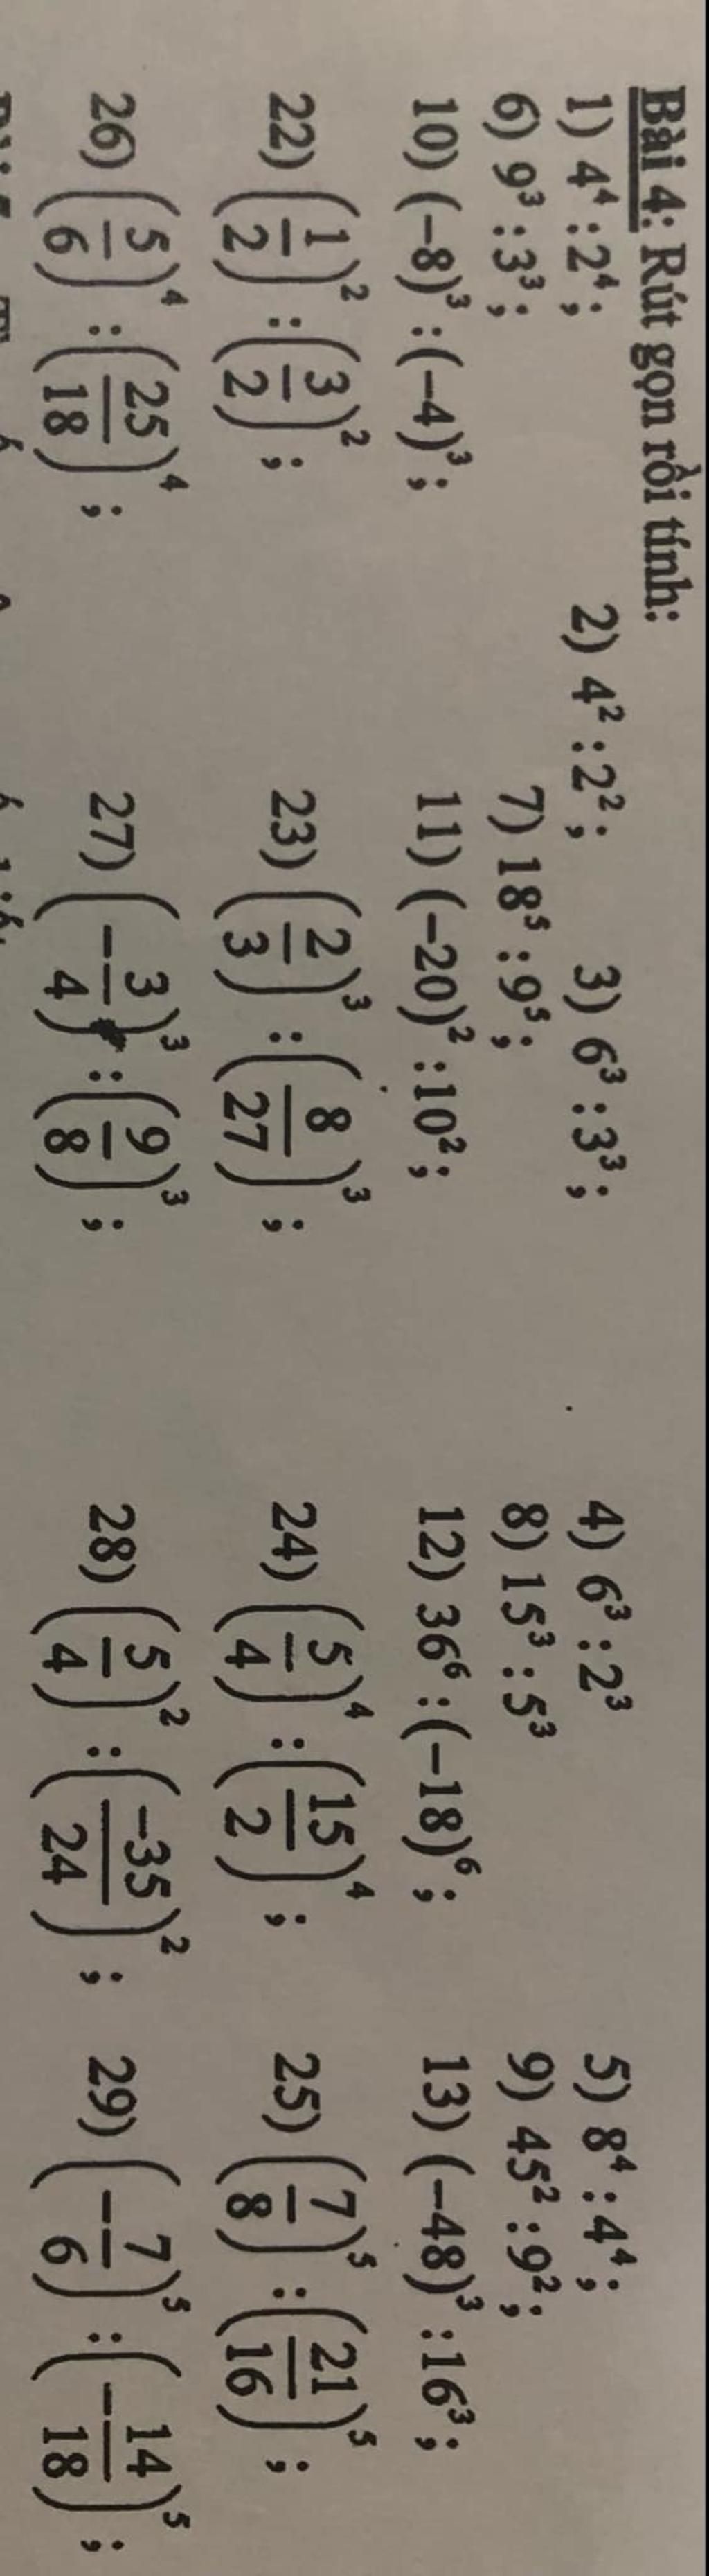 Bài 4: Rút gọn rồi tính:
1) 4⁴ : 2⁴; 2) 4² : 2²; 3) 6³ : 3³; 4) 6³ : 2³ 5) 8⁴ : 4⁴;
6) 9³ : 3³; 7) 18⁵ : 9⁵; 8) 15³ : 5³ 9) 45² : 9²;
10) (−8)³ : (−4)³; 11) (−20)² : 10²; 12) 36⁶ : (−18)⁶; 13) (−48)³ : 16³;
22) (1/2)² : (3/2)²; 23) (2/3)³ : (8/27)³; 24) (5/4)⁴ : (15/2)⁴; 25) (7/8)⁵ : (21/16)⁵;
26) (5/6)⁴ : (25/18)⁴; 27) (−3/4)³ : (9/8)³; 28) (5/4)² : (−35/24)²; 29) (−7/6)⁵ : (−14/18)⁵;